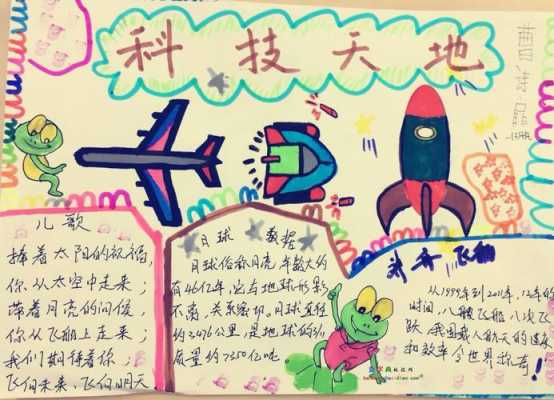 科技天地
儿歌
捧着太阳的祝福,
你,从太空中走来;
带着月亮的问候,
你从飞船上走来;
我们期待着你;
飞向未来,飞向明天
月球 数据
月球俗称月亮,年龄大约
有46亿年,它与地球形影
不离,关系密切,月球直径
约3476公里,是地球的3/11
质量约7350亿吨
神舟飞船
从1999年到2011年,12年的
时间,八艘飞船,八次飞
跃,我国载人航天的速度
和效率令世界称奇!